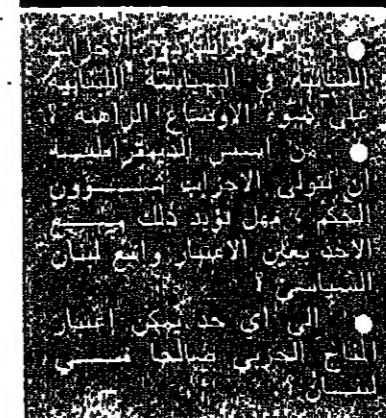 دور الاحزاب
في السياسة
على ضوء الاوضاع الراهنة ؟
من اسس الديمقراطية
ان تتولى الاحزاب شؤون
الحكم ، فهل تؤيد ذلك مع
الاخذ بعين الاعتبار واقع لبنان
السياسي ؟
الى أي حد يمكن اعتبار
النتاج الحزبي صالحا في
لبنان